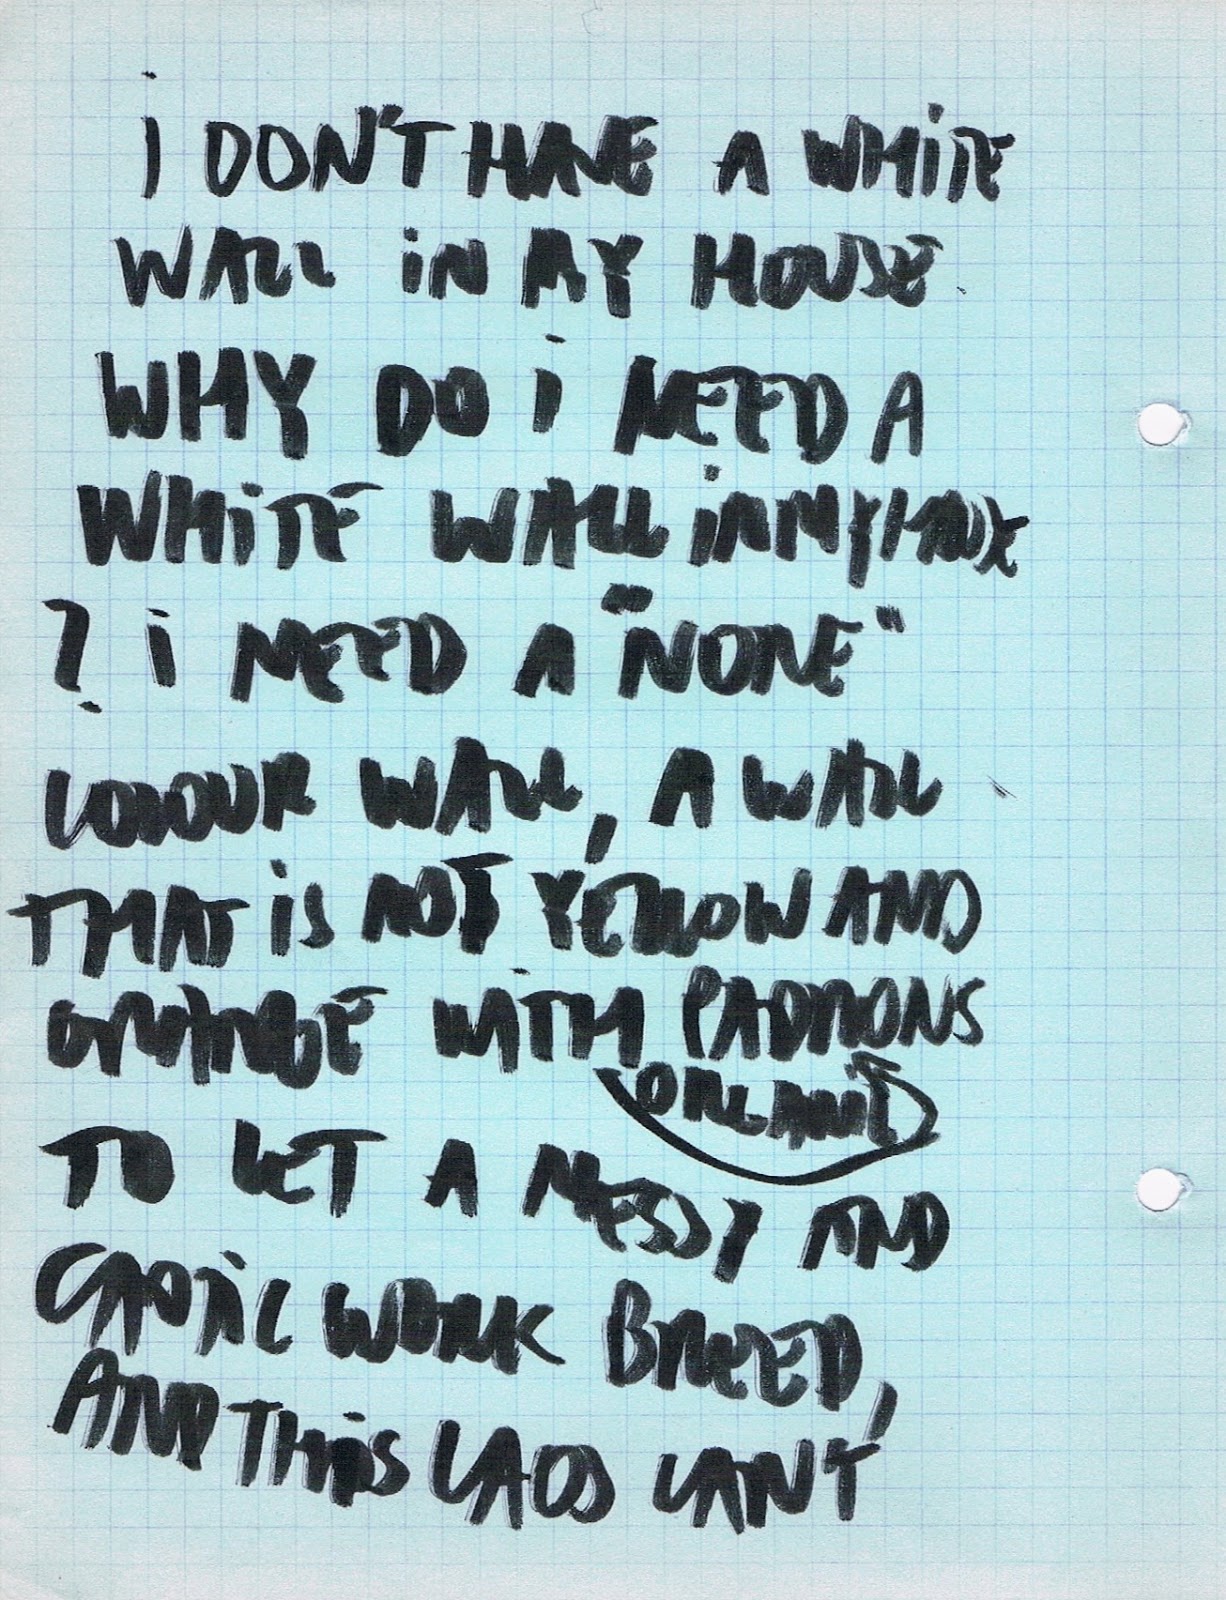 i DON'T HAVE A WHiTE
WALL iN MY HOUSE.
WHY DO i NEED A
WHiTE WALL iN MY HOUSE
? i NEED A "NONE"
COLOUR WALL, A WALL
THAT iS NOT YELLOW AND
ORANGE WiTH PADRONS
TO LET A MESSY AND
CAOTiC WORK BREED,
AND THiS CAOS CANT